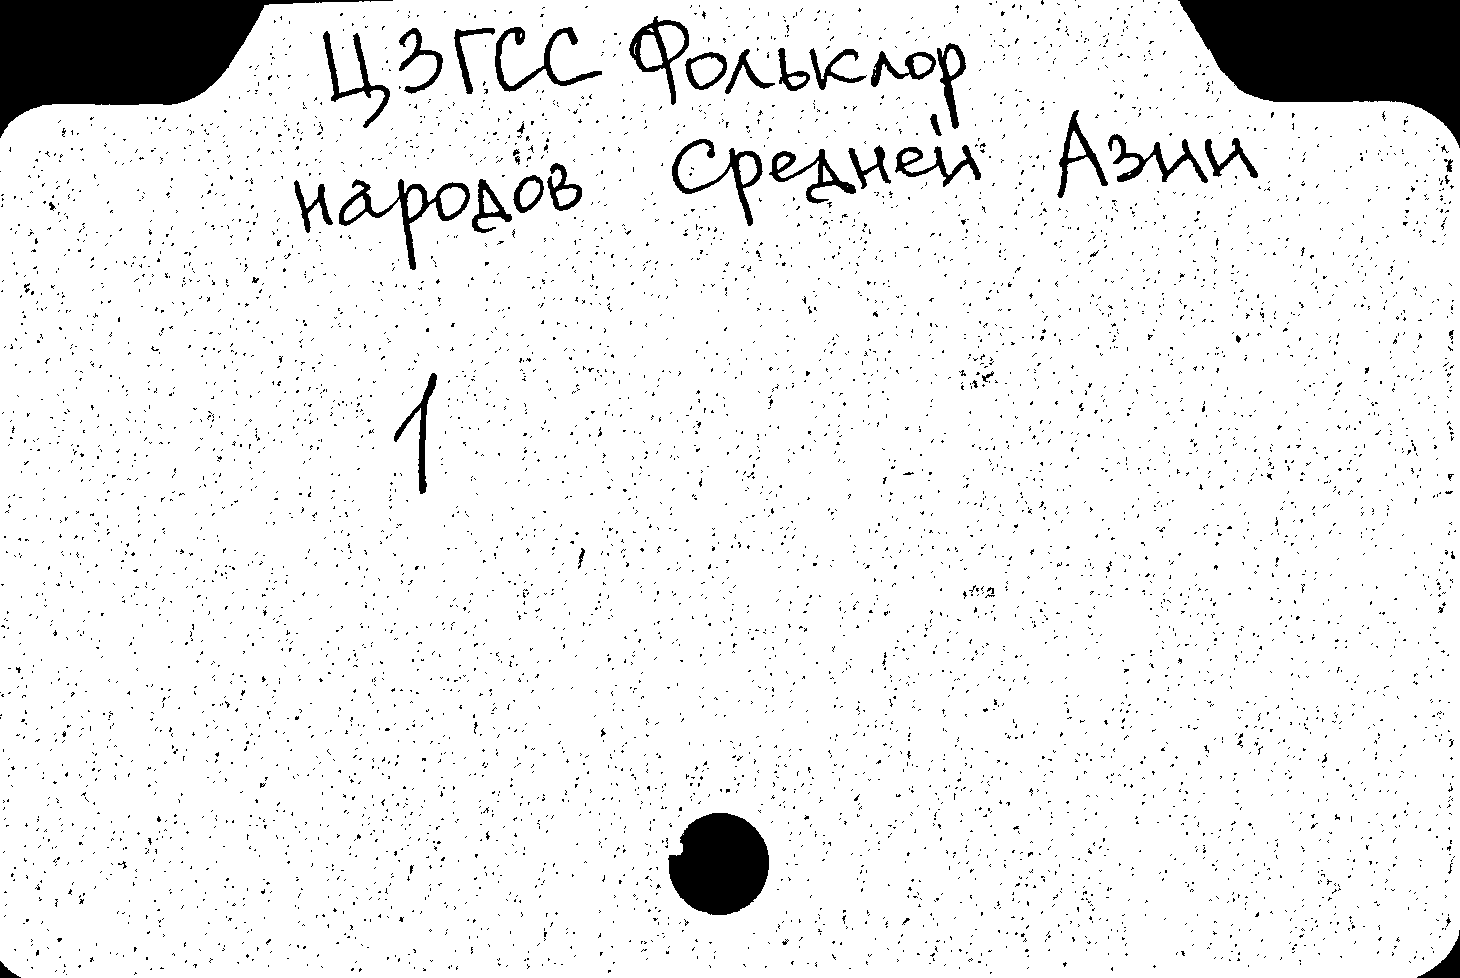 ЦЗГСС Фольклор
народов Средней Азии
1